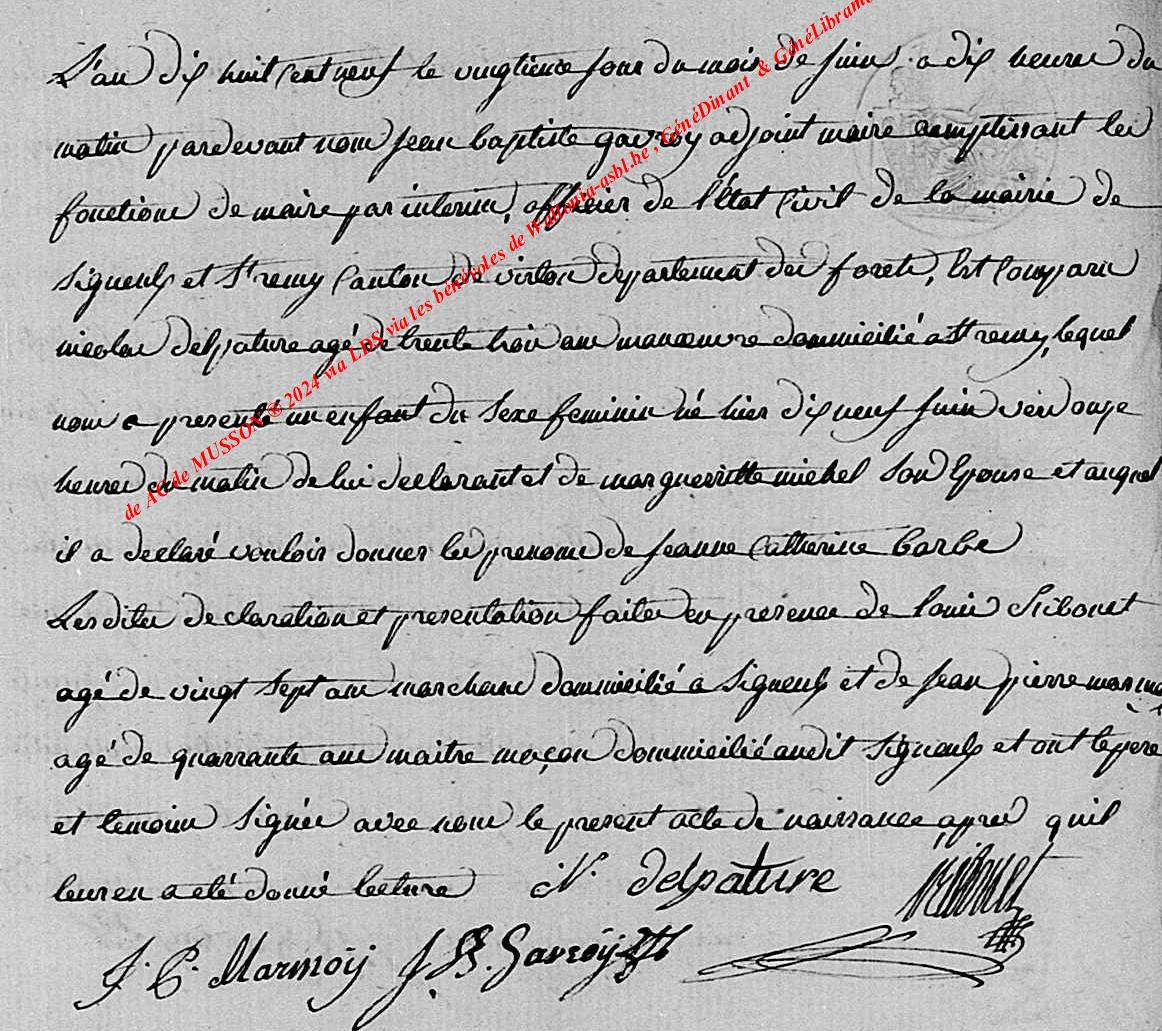 L'an dix huit Cent neuf le vingtieme Jour du mois de Juin a dix heures du
matin pardevant nous Jean baptiste gavroy adjoint maire remplissant les
fonctions de maire par interim, officier de l'état Civil de la mairie de
Signeulx et St remy Canton de virton departement des forets, Est Comparu
nicolas delpature agé de trente trois ans manoeuvre dommicilié a St remy, lequel
nous a presenté un enfant du Sexe feminin né hier dix neuf Juin vers onze
heures du matin de lui declarant et de marguerritte michel Son Epouse et auquel
il a declaré vouloir donner les prenoms de Jeanne Catherine barbe
Lesdites declaration et presentation faites en presence de louis
agé de vingt Sept ans marchand dommicilié a Signeulx et de Jean pierre
agé de quarrante ans maitre maçon dommicilié audit Signeulx et ont le pere
et temoins Signés avec nous le present acte de naissance apres quil
leur en a eté donné lecture N. delpature
J. P. Marmoÿ J. B. Gavroÿ
de AC de MUSSON ® 2024 via LDS via les bénévoles de Wallonia-asbl.be , GénéDinant & GénéLibramo